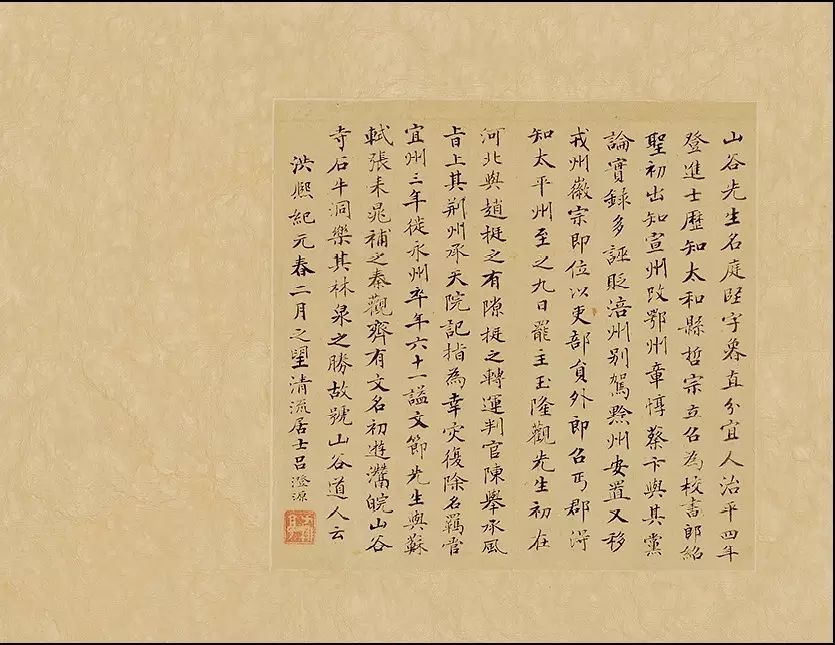 山谷先生名庭堅字魯直分宜人治平四年
登進士歷知太和縣哲宗立召為校書郎紹
聖初出知宣州改鄂州章惇蔡卞與其黨
論實錄多誣貶涪州别駕黔州安置又移
戎州徽宗即位以吏部負外即召丐郡淂
知太平州至之九日罷主玉隆觀先生初在
河北與趙挺之有隙挺之轉運判官陳舉承風
旨上其荊州承天院記指為幸灾復除名羈管
宜州三年徙永州卒年六十一謚文節先生與蘇
軾張耒晁補之秦觀齊有文名初遊灊皖山谷
寺石牛洞樂其林泉之勝故號山谷道人云
洪熙紀元春二月之朢清流居士呂澄源